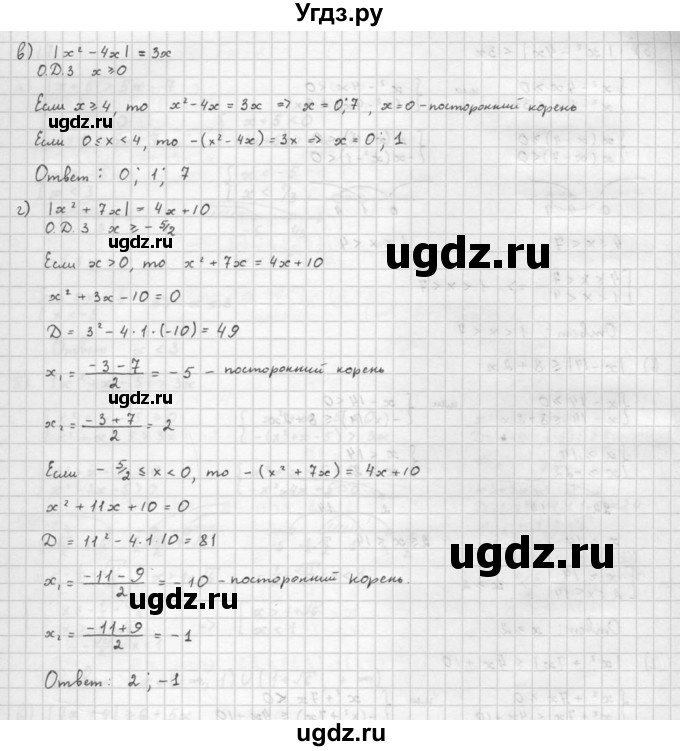 Угдз.ру
в) |x² - 4x| = 3x
О.Д.З x ⩾ 0
Если x ⩾ 4, то x² - 4x = 3x ⇒ x = 0; 7, x = 0 - посторонний корень
угдз.ру
Если 0 ≤ x < 4, то -(x² - 4x) = 3x ⇒ x = 0; 1
Ответ: 0; 1; 7
г) |x² + 7x| = 4x + 10
О.Д.З x ⩾ - 5/2
угдз.ру
Если x > 0, то x² + 7x = 4x + 10
угдз.ру
x² + 3x - 10 = 0
D = 3² - 4 · 1 · (-10) = 49
x₁ = (-3 - 7)/2 = -5 - посторонний корень
угдз.ру
x₂ = (-3 + 7)/2 = 2
Если - 5/2 ≤ x < 0, то - (x² + 7x) = 4x + 10
x² + 11x + 10 = 0
D = 11² - 4 · 1 · 10 = 81
угдз.ру
x₁ = (-11 - 9)/2 = -10 - посторонний корень.
угдз.ру
x₂ = (-11 + 9)/2 = -1
Ответ: 2; -1
угдз.ру